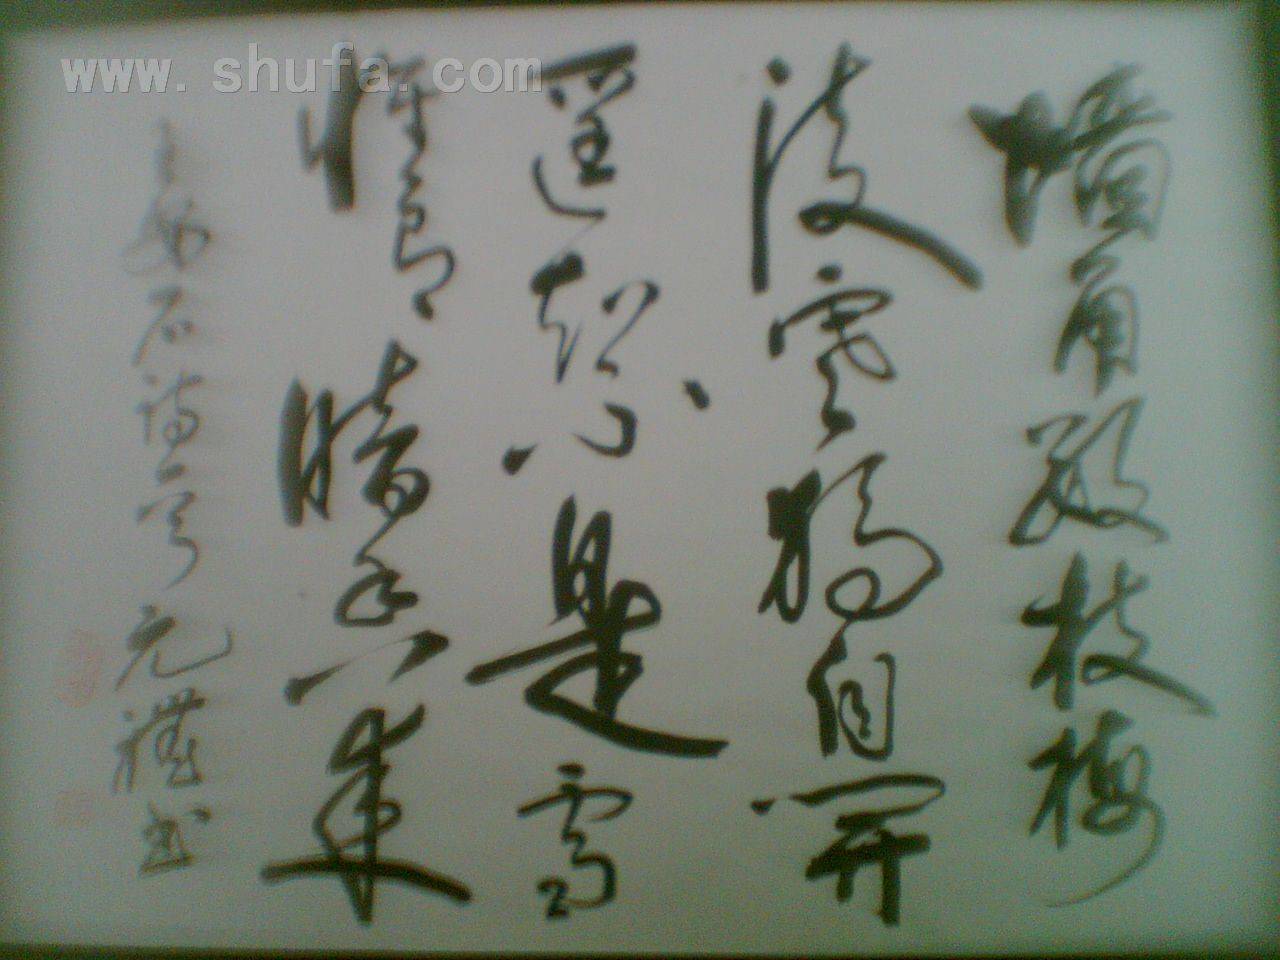 墙角数枝梅
凌寒独自开
遥知不是雪
惟有暗香来
王安石诗一首 元 书
www.shufa.com